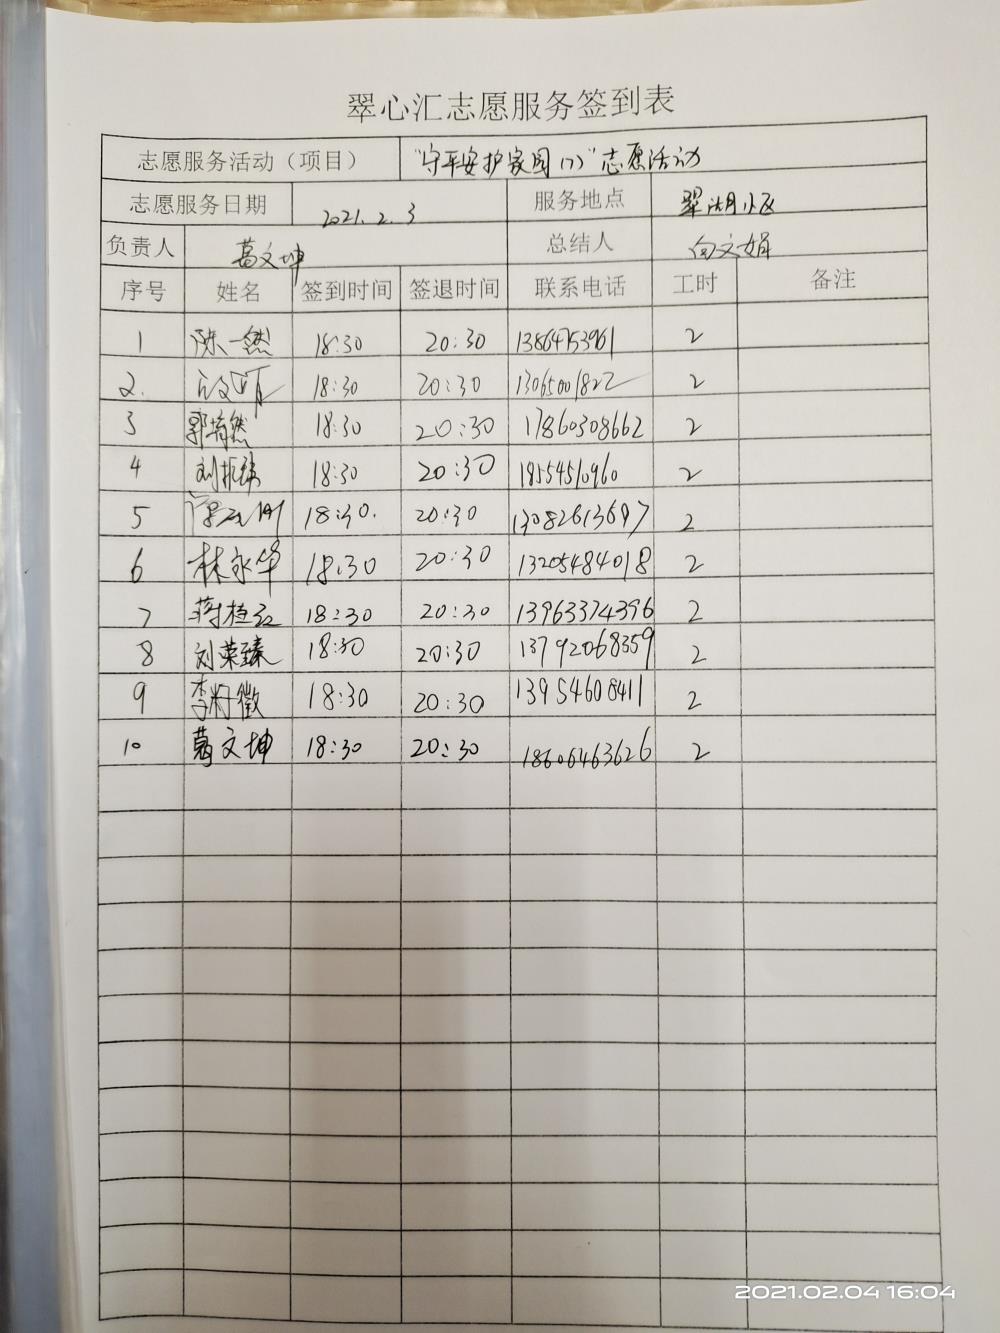 翠心汇志愿服务签到表
志愿服务活动（项目） "守平安护家园(7)"志愿活动
志愿服务日期 2021.2.3 服务地点 翠湖小区
负责人 葛文坤 总结人 向文娟
序号 姓名 签到时间 签退时间 联系电话 工时 备注
1 陈一然 18:30 20:30 13864753961 2
2. 18:30 20:30 13065001822 2
3 郭培然 18:30 20:30 17860308662 2
4 刘振编 18:30 20:30 18554510960 2
5 18:30. 20:30 13082613697 2
6 林永华 18:30 20:30 13205484018 2
7 蒋桂红 18:30 20:30 13963374396 2
8 刘荣臻 18:30 20:30 13792068359 2
9 李籽徵 18:30 20:30 13954608411 2
10 葛文坤 18:30 20:30 18606463626 2
2021.02.04 16:04